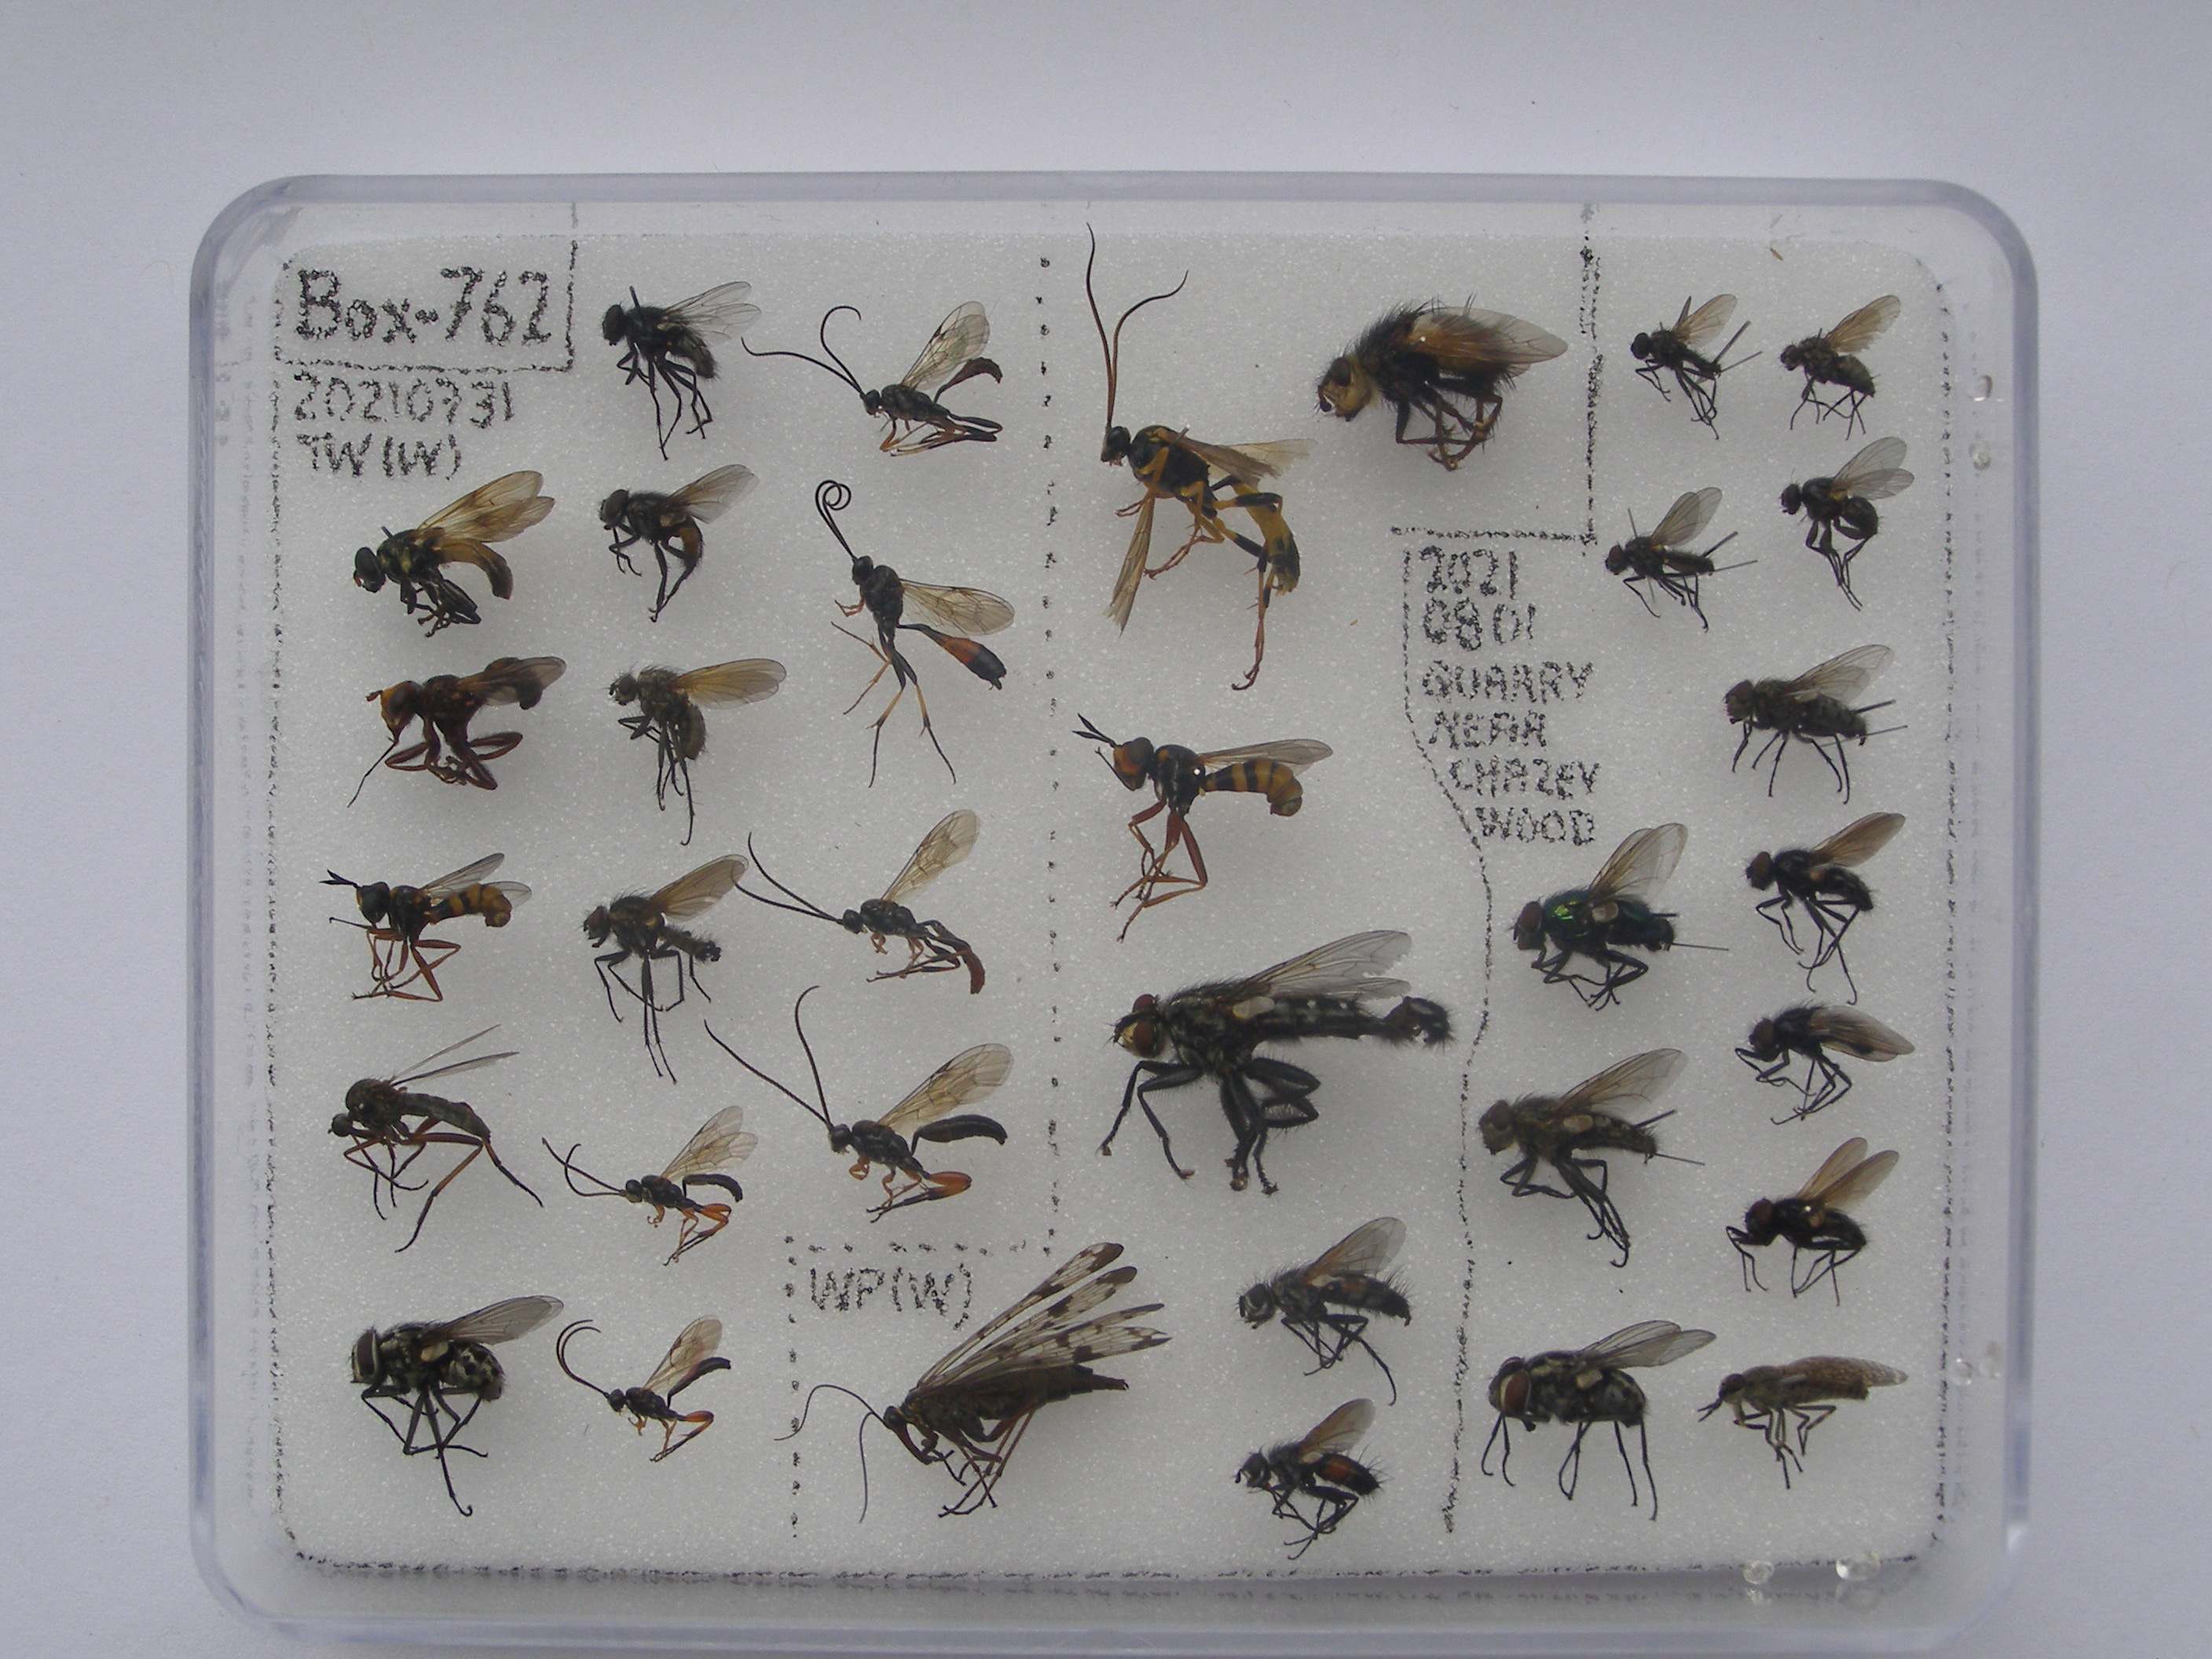 Box-762
20210731
TW(W)
2021
0801
QUARRY
NEAR
CHAZEY
WOOD
WP(W)